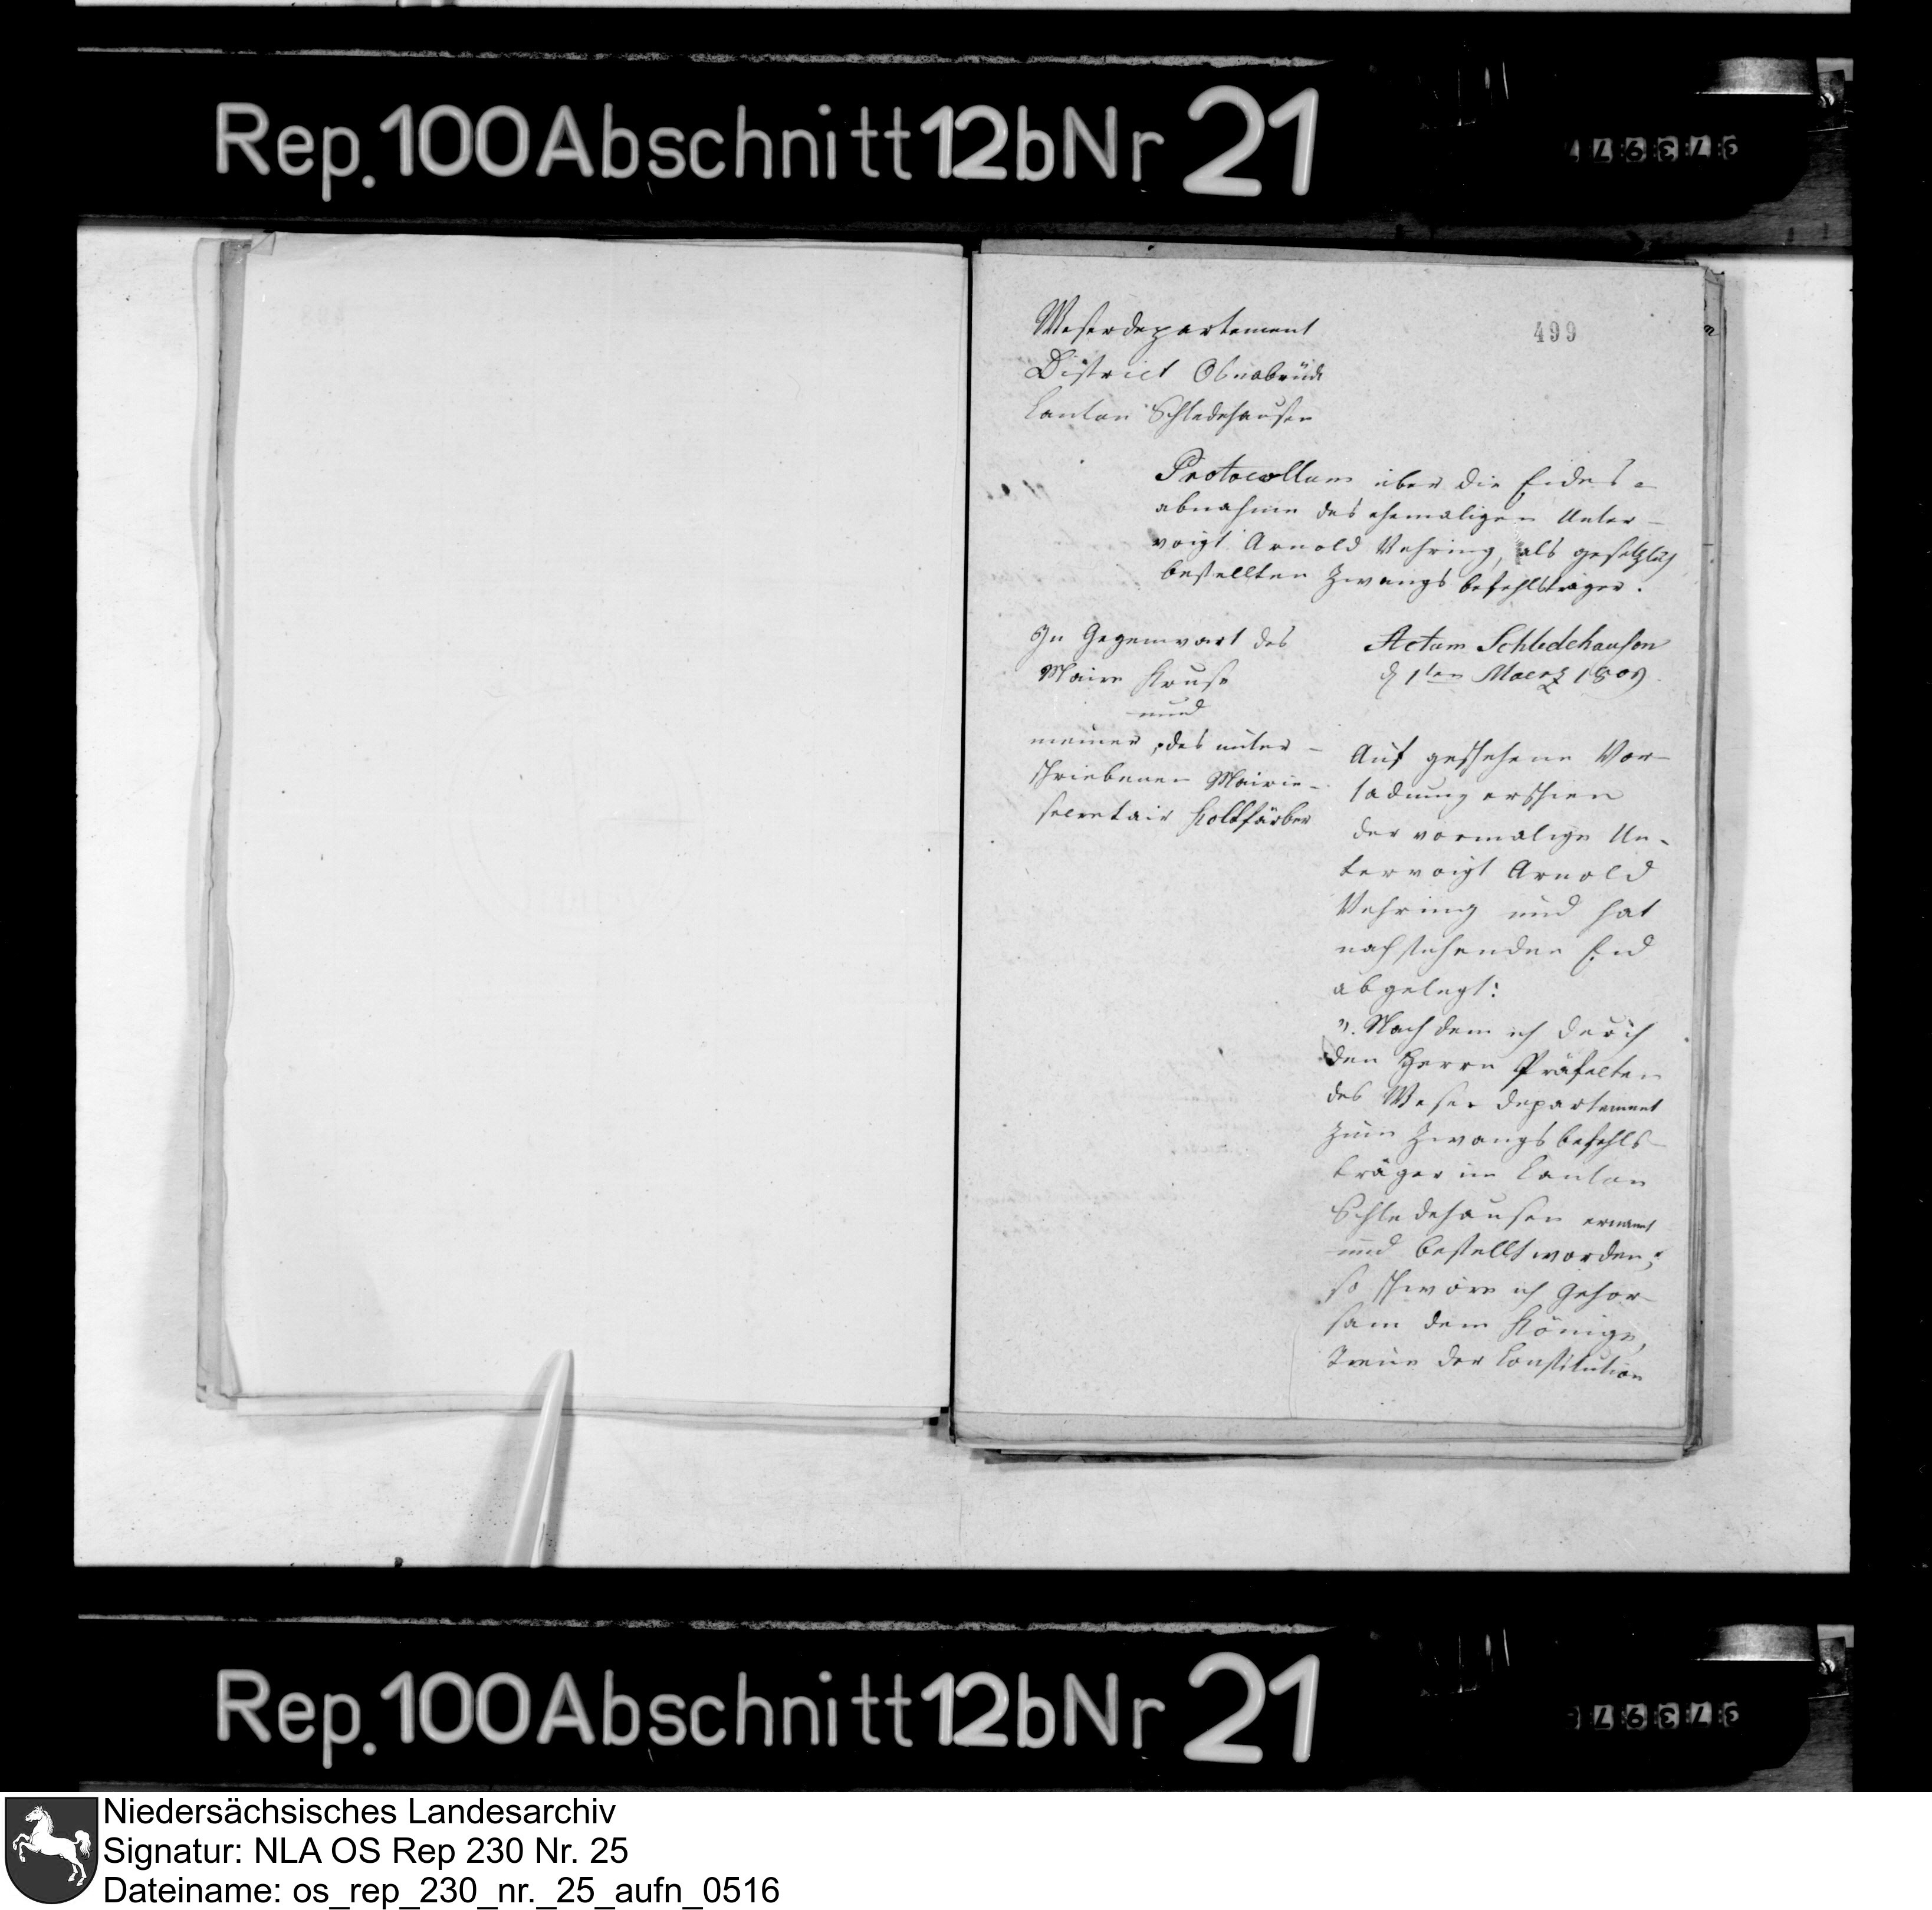 Rep. 100 Abschnitt 12b Nr 21
499
Weserdepartement
District Osnabrück
Canton Schledehausen
Protocollum über die Eides-
abnahme des ehemaligen Unter-
voigt Arnold Vehring, als gesetzlich
bestellten Zwangsbefehlsträger.
In Gegenwart des
Maire Kruse
und
meiner, des unter-
schriebenen Mairie-
secretair Holtfärber
Actum Schledehausen
d 1ten Maerz 1809.
Auf geschehene Vor-
ladung erschien
der vormalige Un-
tervoigt Arnold
Vehring und hat
nachstehenden Eid
abgelegt:
". Nachdem ich durch
den Herrn Präfecten
des Weser departement
zum Zwangsbefehls-
träger im Canton
Schledehausen ernannt
und bestellt worden;
so schwöre ich Gehor-
sam dem Könige,
Treue der Constitution
Rep. 100 Abschnitt 12b Nr 21
Niedersächsisches Landesarchiv
Signatur: NLA OS Rep 230 Nr. 25
Dateiname: os_rep_230_nr._25_aufn_0516